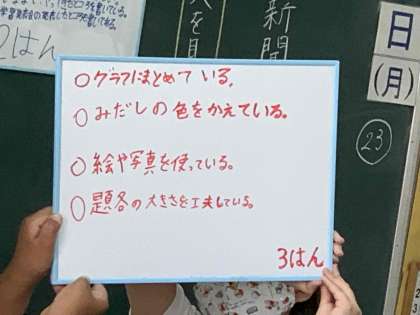 ○グラフにまとめている。
○みだしの色をかえている。
○絵や写真を使っている。
○題名の大きさを工夫している。
3はん
新聞
日
(月)
23
2はん